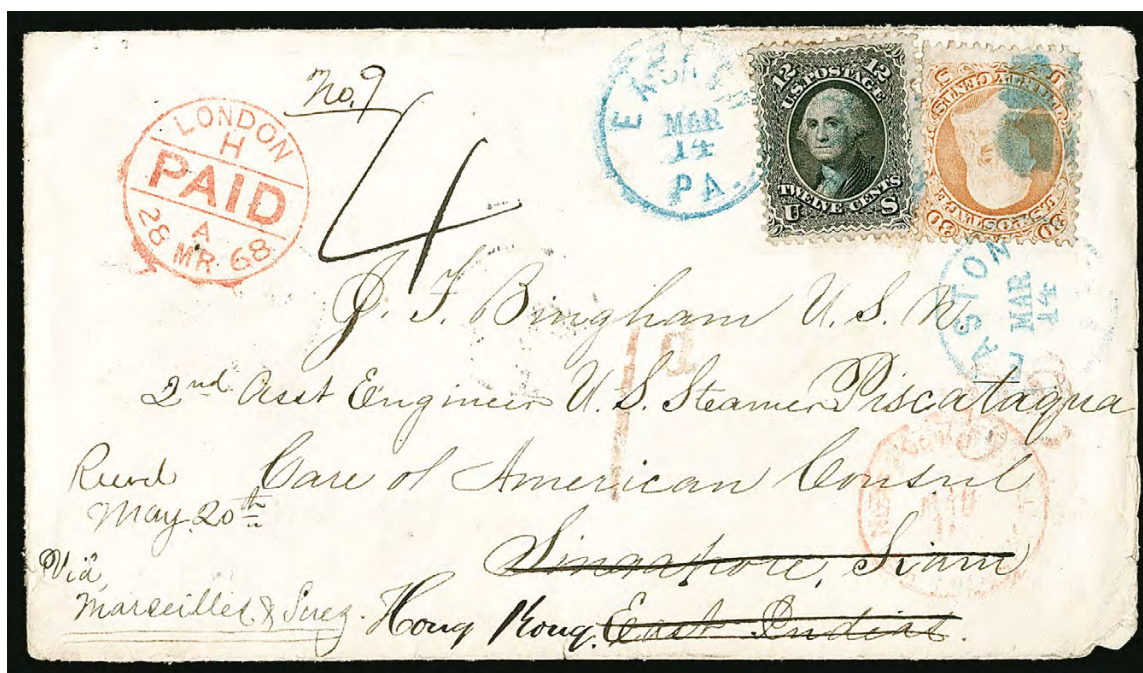 No. 9
4
LONDON
H
PAID
A
28 MR 68
EASTON
MAR
14
PA.
12 12
U.S. POSTAGE
TWELVE CENTS
U S
30 30
EASTON
MAR
14
J. F. Bingham U. S. N.
2nd Asst Engineer U. S. Steamer Piscataqua
Care of American Consul
Singapore, Siam
Hong Kong. East Indies.
Recvd
May 20th
Via
Marseilles & Suez.
1d